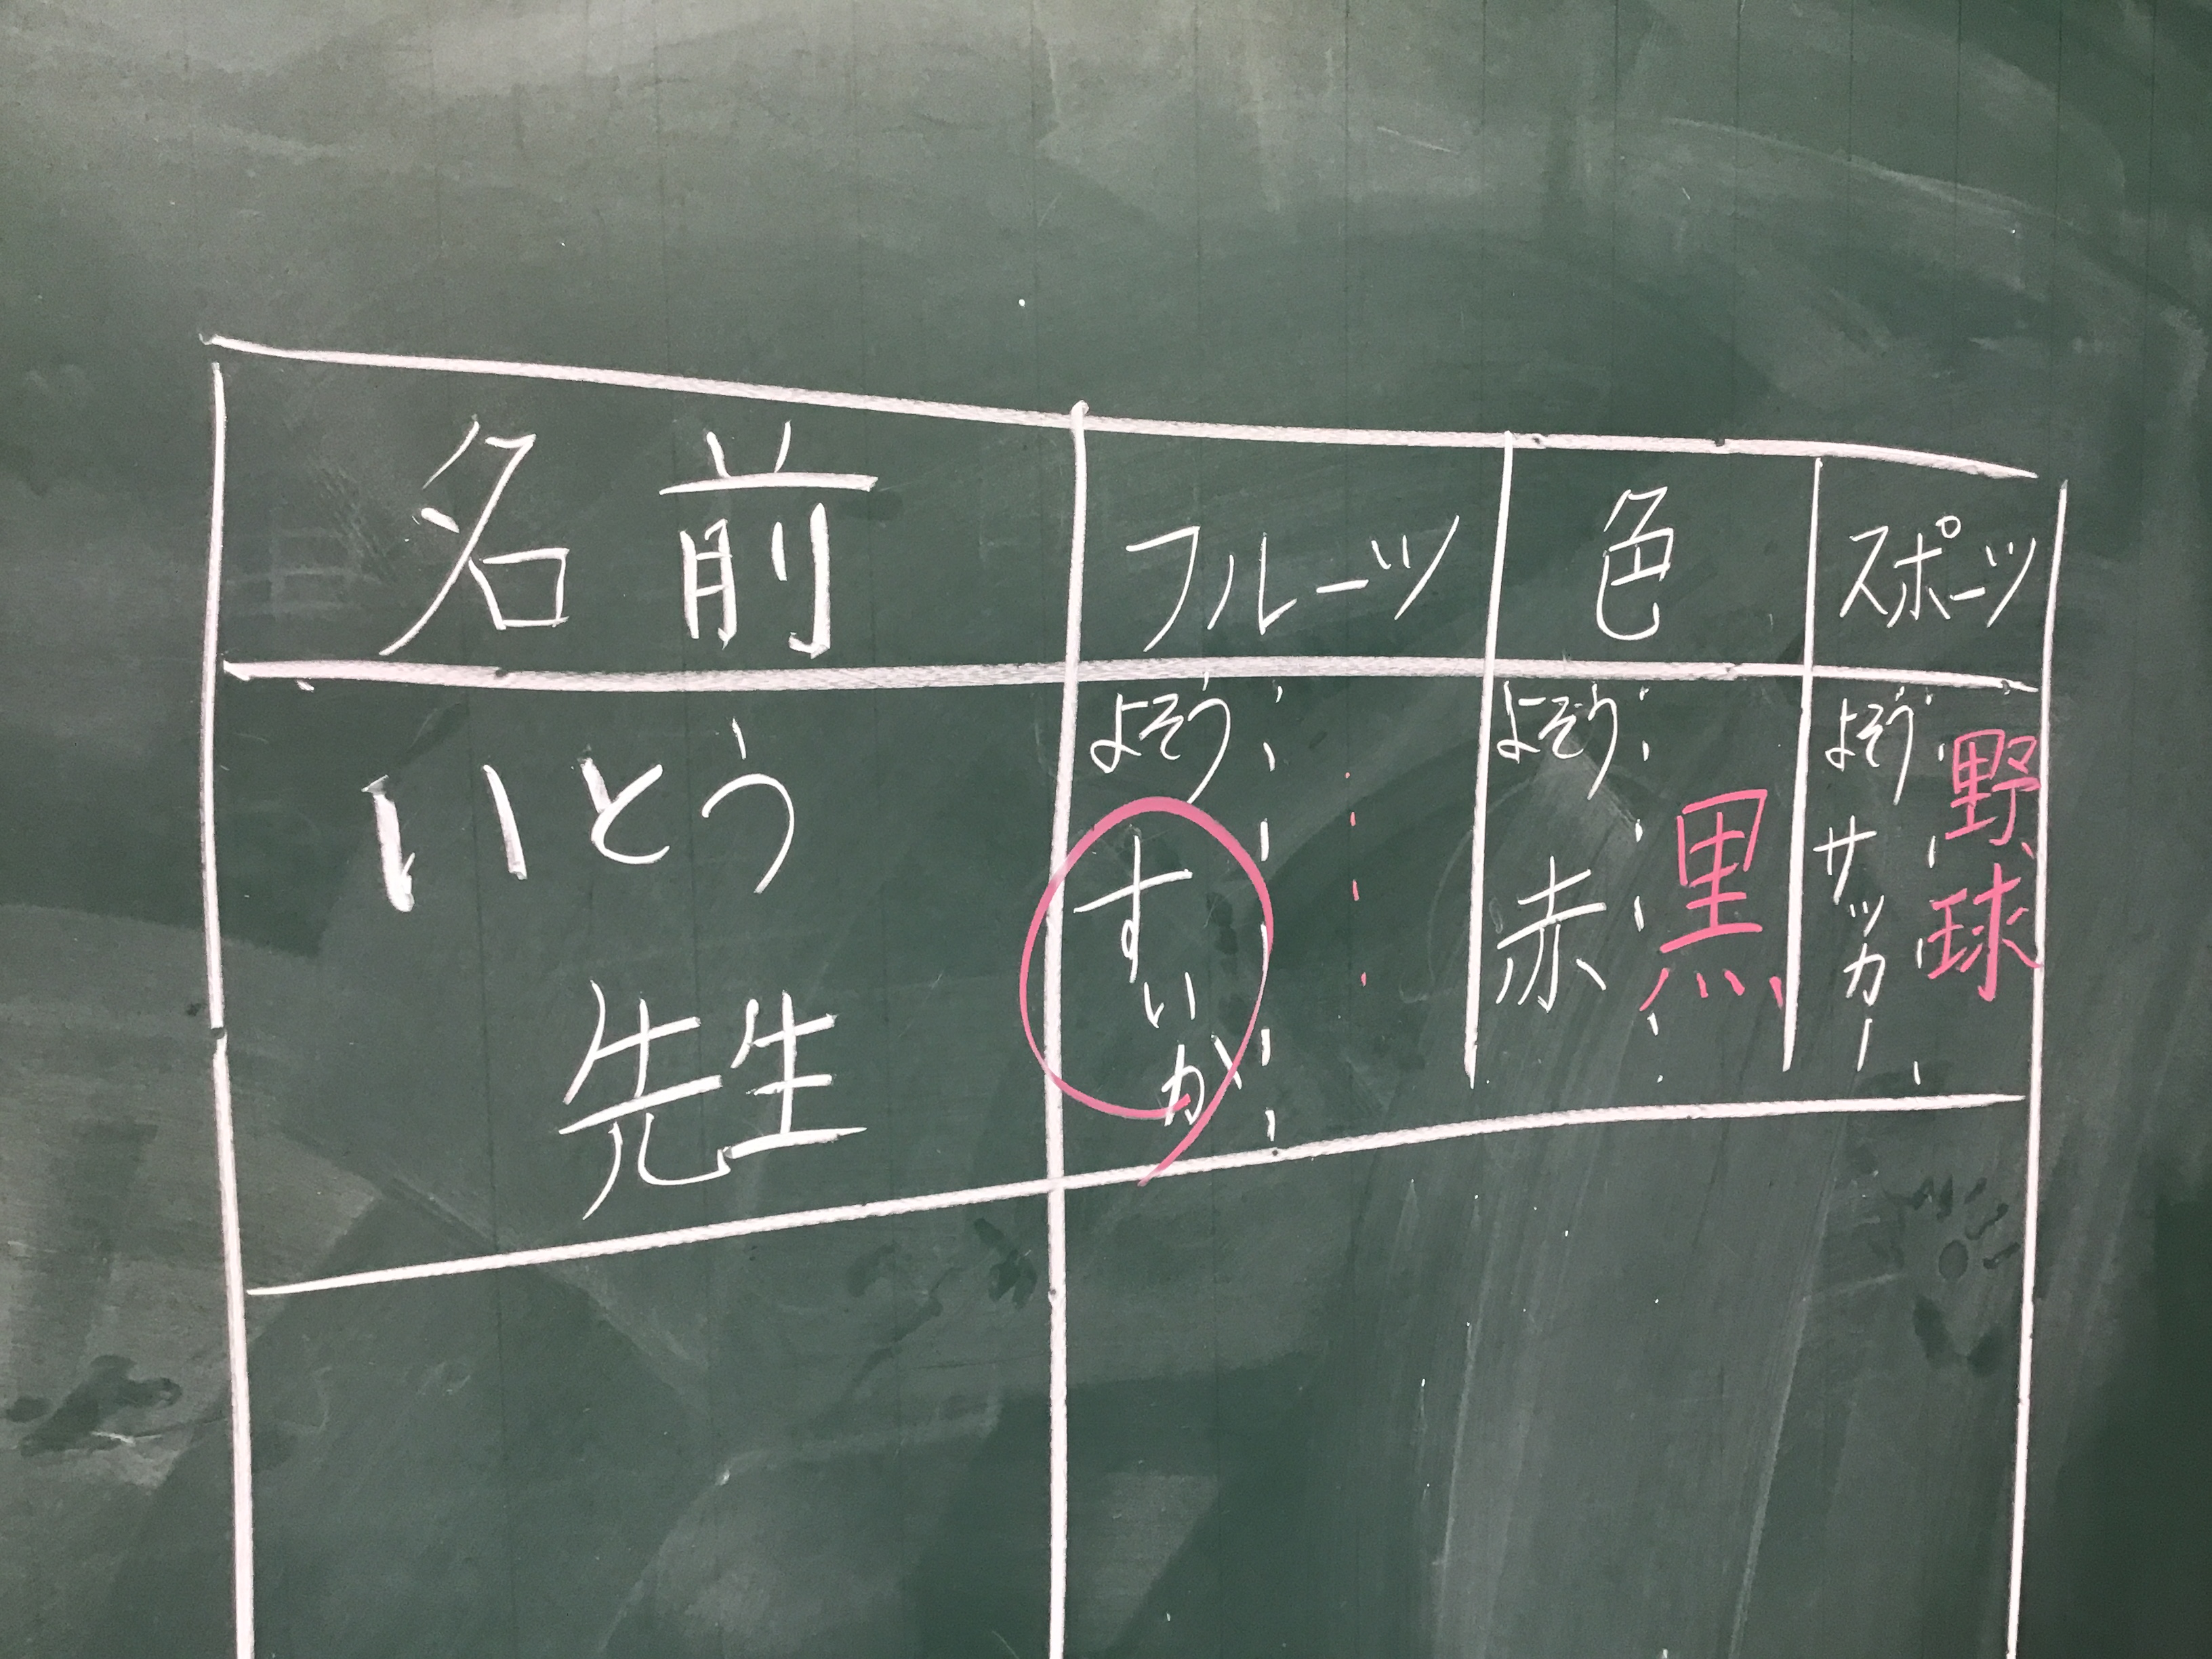 名前 フルーツ 色 スポーツ
いとう
先生
よそう
すいか
よそう
赤
黒
よそう
サッカー
野球